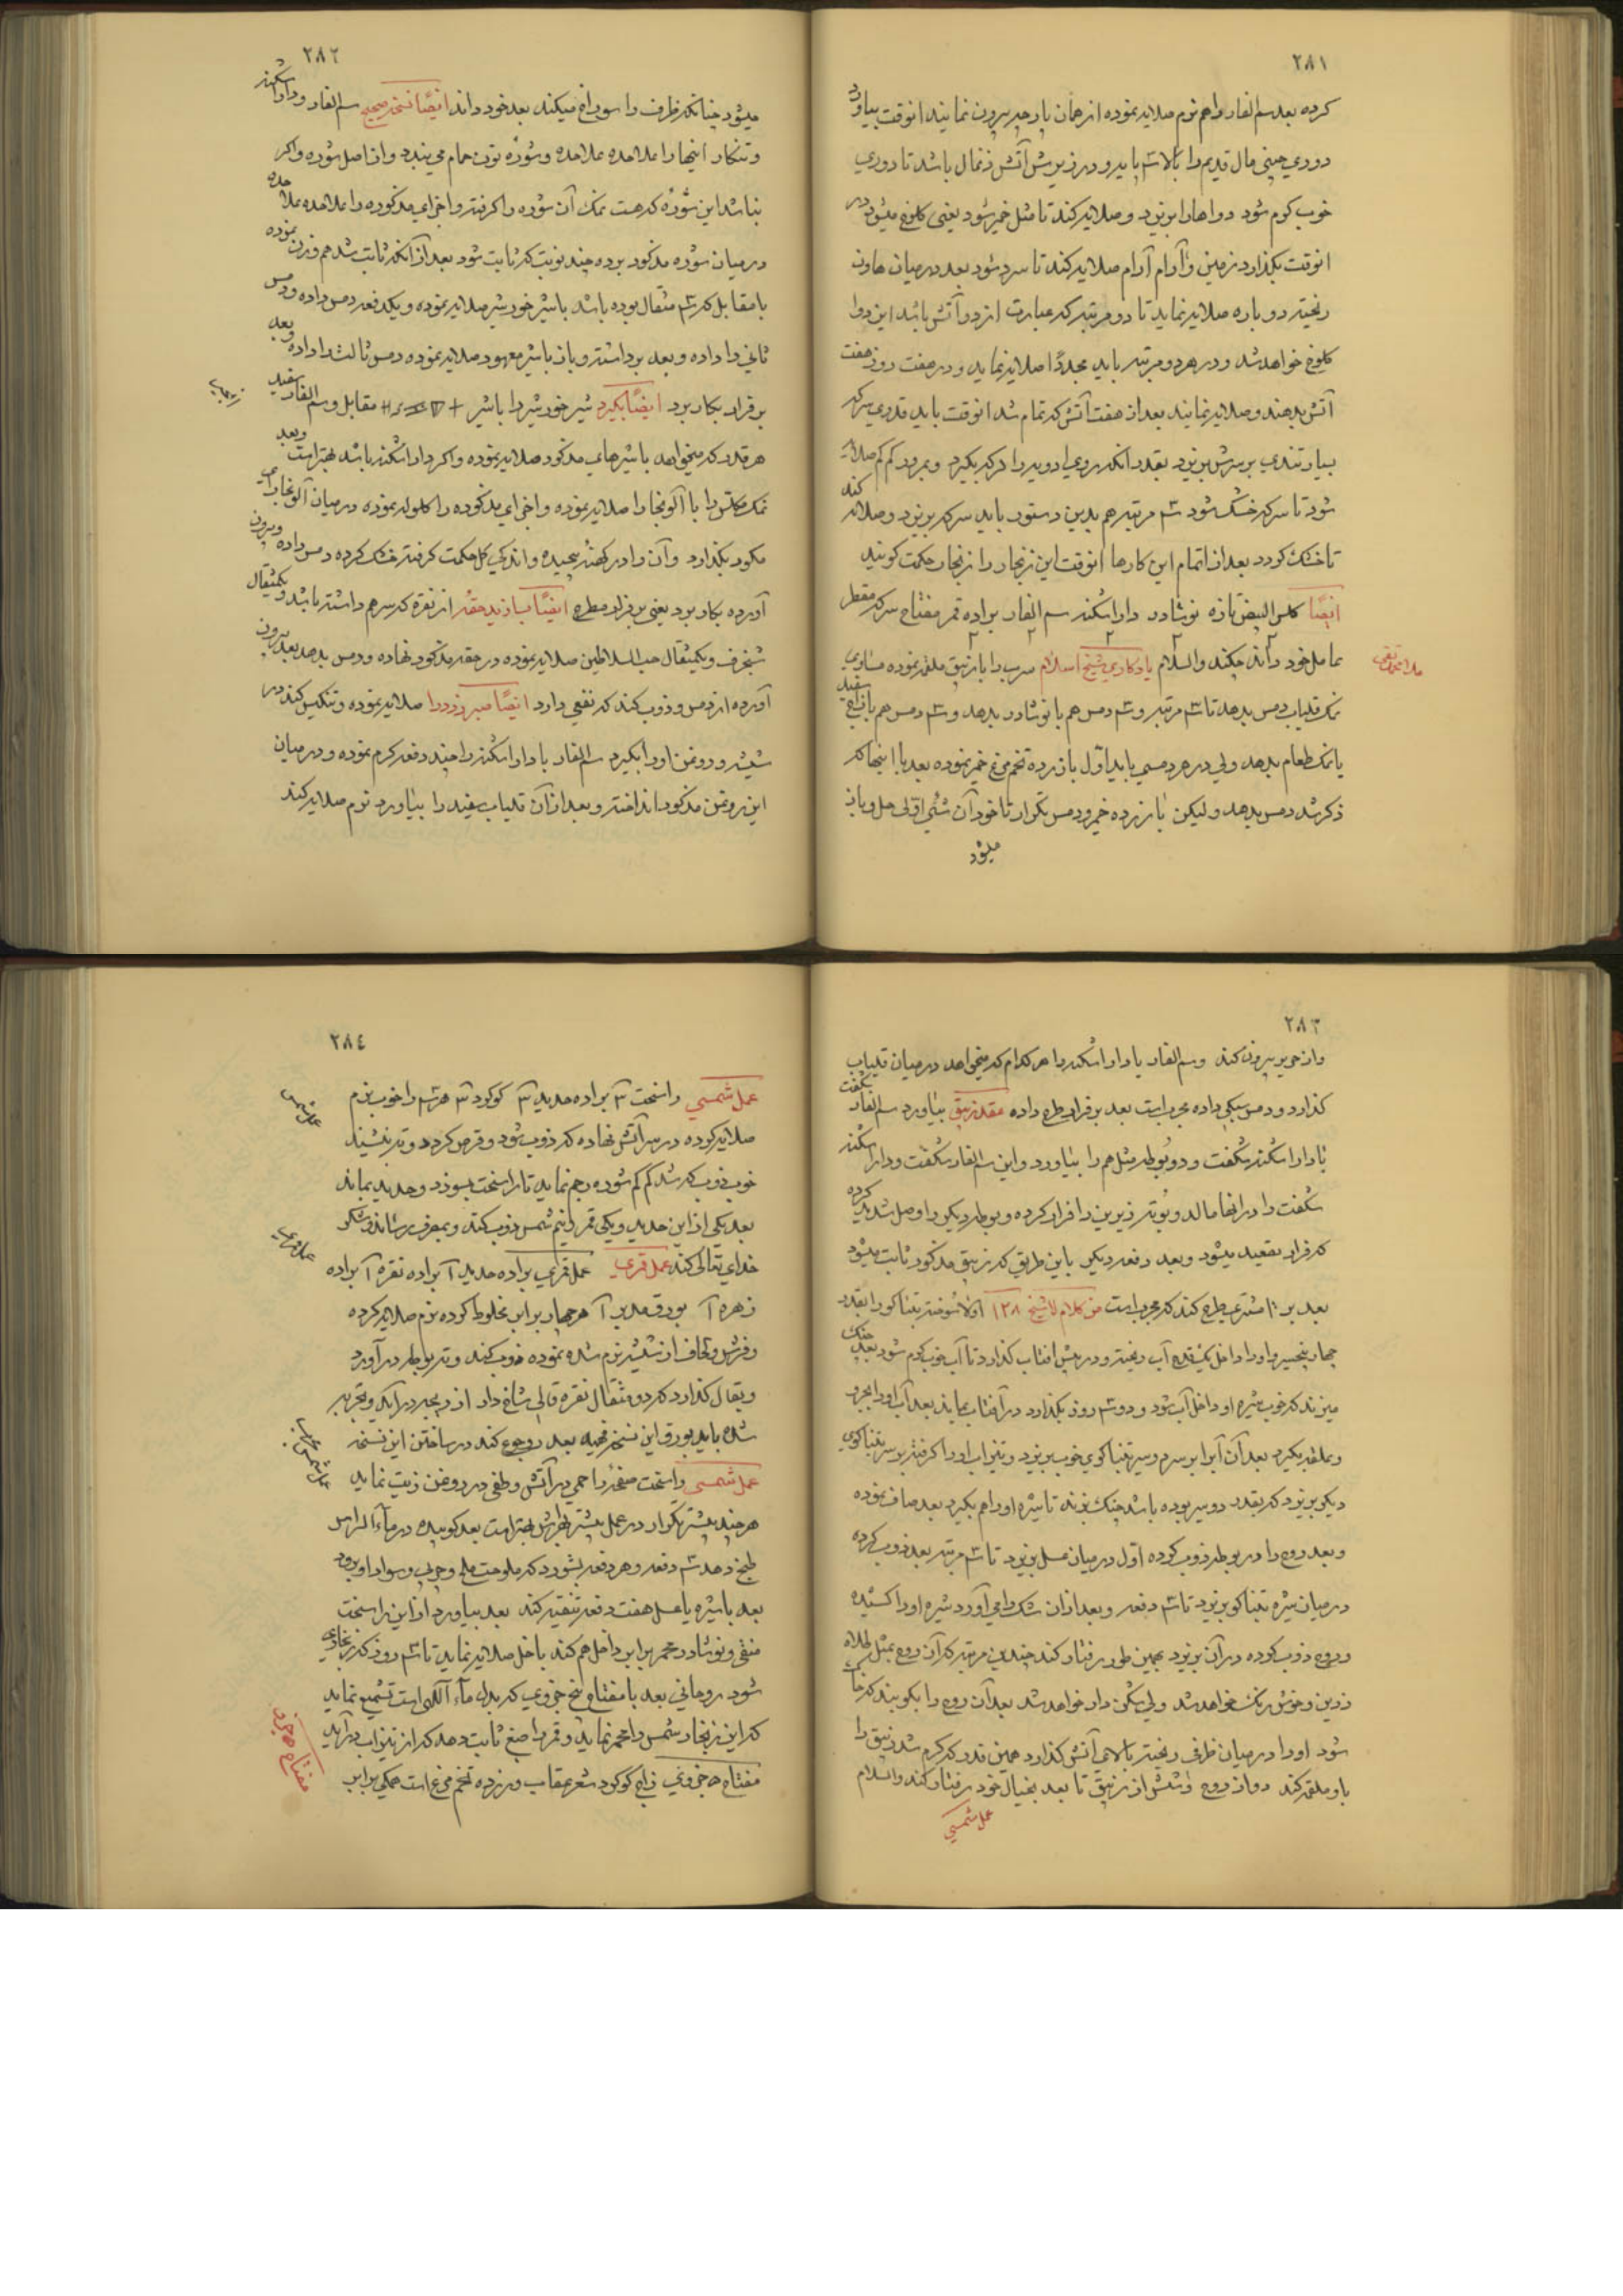 ٢٨١
کرده بعد سم الفار را هم نرم صلایه نموده از همان پارچه بیرون نمایند انوقت بیاورد
دوری چینی مال قدیم را بالای سه پایه و در زیرش آتش زغال باشد تا دوری
خوب گرم شود دواها را بریزد و صلایه کند تا مثل خمیر شود یعنی کلوخ میشود در
انوقت بگذارد زمین و آرام آرام صلایه کند تا سرد شود بعد در میان هاون
ریخته دوباره صلایه نماید تا دو مرتبه که عبارت از دو آتش باشد این دوا
کلوخ خواهد شد و در هر دو مرتبه باید مجددًا صلایه نماید و در هفت روز هفت
آتش بدهند و صلایه نمایند بعد از هفت آتش که تمام شد انوقت باید قدری سرکه
بسیار تندی بر سرش بریزد بقدر انکه روی ادویه را سرکه بگیرد و بمرور کم کم صلایه
شود تا سرکه خشک شود سه مرتبه هم بدین دستور باید سرکه بریزد و صلایه کند
تا خشک کردد بعد از اتمام این کارها انوقت این زنجار را زنجار حکمت کویند
ایضًا کلس البیض تازه نوشادر داراشکنه سم الفار براده قمر مفتاح سرکه مقطر
عامل خود داند چکند والسلام یادکاری شیخ اسلام سرب را با زیبق ملغمه نموده مساوی
نمک قلیاب دمس بدهد تا سه مرتبه و سه دمس هم با نوشادر بدهد و سه دمس هم با زاج سفید
یا نمک طعام بدهد ولی در هر دمسی باید اول با زرده تخم مرغ خمیر نموده بعد با اینها که
ذکر شد دمس بدهد ولیکن با زرده خمیر و دمس تکرار تا خود آن شیٔ اولی حل وباز
میشود
٢٨٢
میشود چنانکه ظرف را سوراخ میکند بعد خود داند ایضًا نسخه صحیح سم الفار و داراشکنه
و تنکار اینها را علاحده علاحده و شوره تون حمام می بندد و از اصل شوره و اکر
نباشد این شوره که هست نمک آن شوره را کرفته و اجزای مذکوره را علاحده علاحده
در میان شوره مذکور برده چند نوبت که ثابت شود بعد از آنکه ثابت شد هم وزن نموده
با مقابل که سه مثقال بوده باشد با شیر خورشیر صلایه نموده و یکدفعه دمس داده و دمس
ثانی را داده و بعد برداشته و باز با شیر معهود صلایه نموده دمس ثالث را داده و بعد
بر قرار بکار برد ایضًا بکیرد شیر خورشیر را با شیر مقابل و سم الفار سفید
هر قدر که میخواهد با شیرهای مذکور صلایه نموده و اکر داراشکنه باشد بهتر است و بعد
نمک مکلس را با آلو بخارا صلایه نموده و اجزای مذکوره را کلوله نموده در میان آلو بخارای
مکور بکذارد و آن را در کهنه پیچیده و اندکی کل حکمت کرفته خشک کرده دمس داده و بیرون
آورده بکار برد یعنی بر فرار مطرح ایضًا بسازند حقه از نقره که سر هم داشته باشد و یکمثقال
شنجرف و یکمثقال حب السلاطین صلایه نموده در حقه مذکور نهاده و دمس بدهد بعد بیرون
آورده از دمس و ذوب کند که نفعی دارد ایضًا صبر زرد را صلایه نموده و تنکیس کند در
شیشه و روغن او را بکیرد سم الفار یا داراشکنه را چند دفعه کرم نموده و در میان
این روغن مذکور انداخته و بعد از آن قلیاب سفید را بیاورد نرم صلایه کند
٢٨٣
واز حریر بیرون کند وسم الفار یا داراشکنه را هر کدام که میخواهد در میان قلیاب
کذارد و دمس سبکی داده مجرب است بعد بر فرار طرح داده عقد زیبق بیاورد سم الفار شکفت
یا داراشکنه شکفت و دو بوطه مثل هم را بیاورد و این سم الفار شکفت و داراشکنه
شکفت را در انها مالد و بوته زیرین را فرار کرده و بوطه دیکر را وصل شدید کرده
که فرار تصعید میشود و بعد دفعه دیکر باین طریق که زیبق مذکور ثابت میشود
بعد بر مشتری طرح کند که مجرب است من کلام لاشیخ ١٢٨ اولا نسوخته تنباکو را بقدر
چهار پنج سیر و او را داخل یکقدح آب ریخته و در پیش افتاب کذارد تا آب خوب کرم شود بعد چنک
میزند که خوب شیره او داخل آب شود و دو سه روز بکذارد در آفتاب بماند بعد آب او را بجرد
و بملقه بکیرد بعد آن آب را بر سر دو سیر تنباکوی خوب بریزد و تیزاب او را کرفته بر سر تنباکوی
دیکر بریزد که بقدر دو سیر بوده باشد چنک بزند تا شیره او را هم بکیرد بعد صاف نموده
و بعد روح را در بوطه ذوب کرده اول در میان عسل بریزد تا سه مرتبه بعد ذوب کرده
در میان شیره تنباکو بریزد تا سه دفعه و بعد از ان شکر را می آورد شیره او را کشیده
و روح ذوب کرده در آن بریزد بهمین طور رفتار کند چندین مرتبه که آن روح بمثل طلاء
زرین و خوش رنک خواهد شد ولی شکن دار خواهد شد بعد آن روح را بکوبند که خاک
شود او را در میان ظرفی ریخته بالای آتش کذارد همین قدر که کرم شد زیبق را
باو ملقمه کند دو از روح و شش از زیبق تا بعد بخیال خود رفتار کند والسلام
عمل شمسی
٢٨٤
عمل شمسی راسخت ۳ براده حدید ۳ کوکرد ۳ هر سه را خوب نرم
صلایه کرده در سر آتش نهاده که ذوب شود و قرص کردد و ته نشیند
خوب ذوب که شد کم کم شوره رجم نماید تا راسخت بسوزد و حدید بماند
بعد یکی از این حدید و یکی قمر و نیم شمس ذوب کند و بمصرف رساند و شکر
خدای تعالی کند عمل قمری عمل قمری براده حدید آ براده نقره آ براده
زهره آ بورق مدبر آ هر چهار برابر مخلوط کرده نرم صلایه کرده
و فرش و لحاف از شیشه نرم شده نموده ذوب کند و ته بوطه در آورد
و بقال کذارد که دو مثقال نقره قالی شاخ دار از در بجه در آید و تجربه
شده باید بورق این نسخه قیمه بعد رجوع کند در ساختن این نسخه
عمل شمسی راسخت صفحه را حمی در آتش و طفی در روغن زیت نماید
هر چند بیشتر تکرار در عمل بیشتر بهر شی بهتر است بعد کوبیده در مآء الراس
طبخ دهد سه دفعه و هر دفعه بشورد که ملوحت ملح و چربی و سواد او برود
بعد با شیره یا عسل هفت دفعه تنقیه کند بعد بیاورد از این راسخت
منقی و نوشادر محمر برابر داخل هم کند با خل صلایه نماید تا سه روز که زنجاری
شود روحانی بعد با مفتاح پنج جزوی که بدل مآء آلهی است تشمیع نماید
که این زنجار شمس را محمر نماید و قمر را صبغ ثابت دهد که از تیزاب در آید
مفتاح ۵ جزوی زاج کوکرد شعر عقاب و زرده تخم مرغ است همکی برابر
عمل شمسی
عمل قمری
مفتاح ۵ جزء